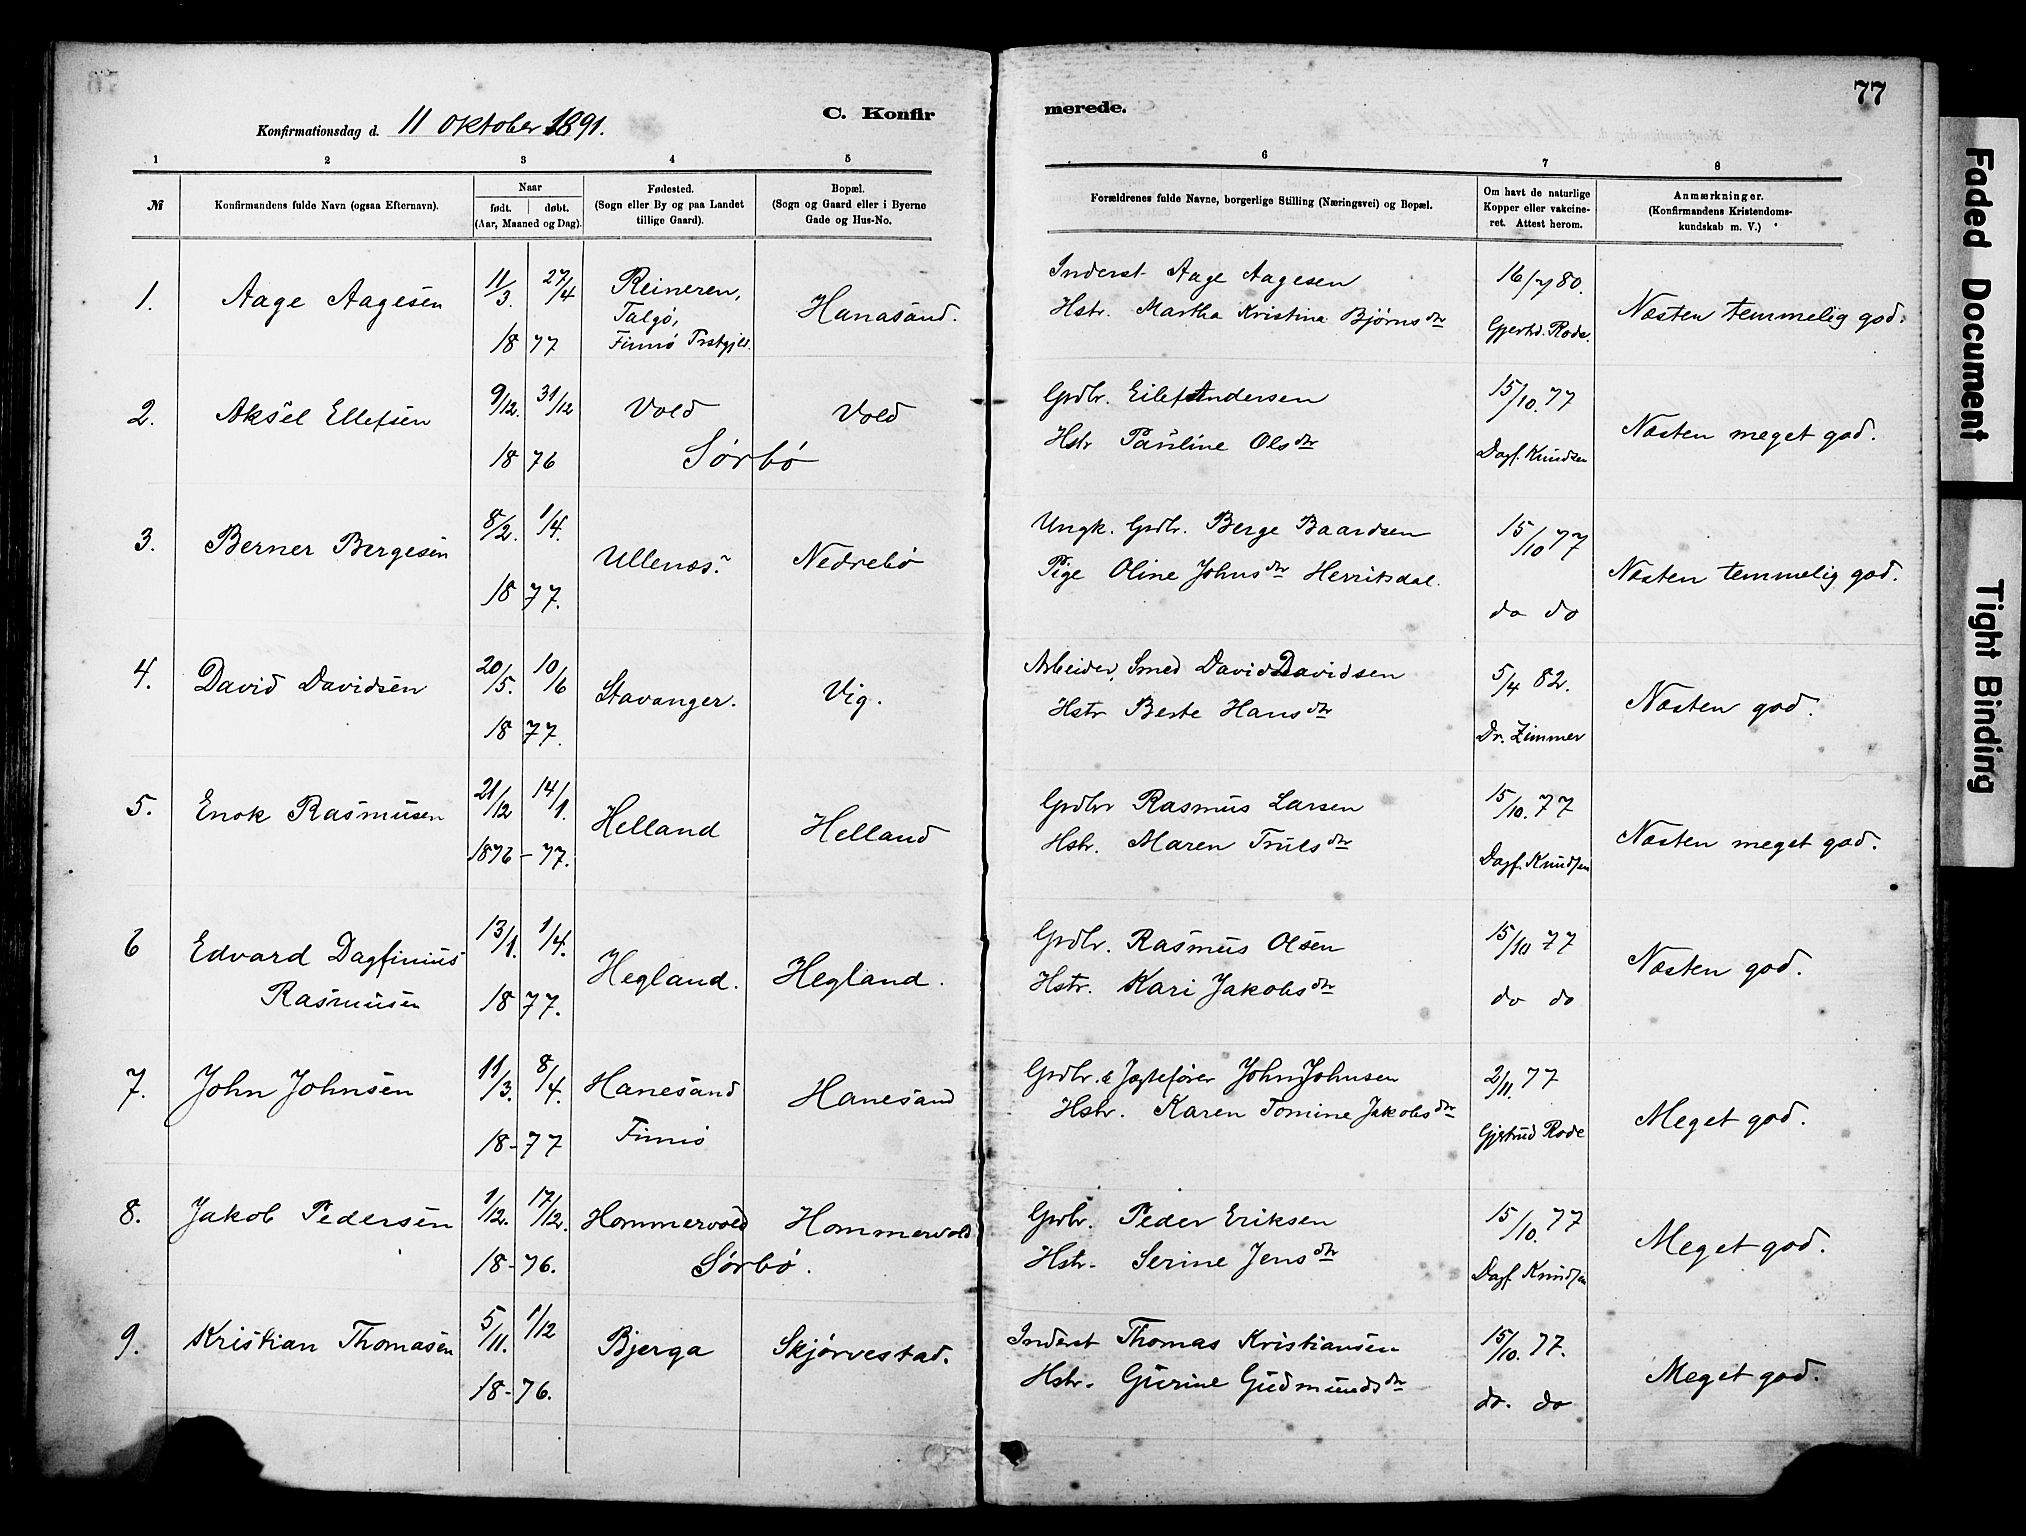 77
C. Konfirmerede.
Konfirmationsdag d. 11 Oktober 1891.
1 2 3 4 5 6 7 8
№
Konfirmandens fulde Navn (ogsaa Efternavn).
Naar
født. | døbt.
(Aar, Maaned og Dag).
Fødested.
(Sogn eller By og paa Landet
tillige Gaard).
Bopæl.
(Sogn og Gaard eller i Byerne
Gade og Hus-No.
Forældrenes fulde Navne, borgerlige Stilling (Næringsvei) og Bopæl.
Om havt de naturlige
Kopper eller vakcine-
ret. Attest herom.
Anmærkninger.
(Konfirmandens Kristendoms-
kundskab m. V.)
1. Aage Aagesen 11/3. 27/4 1877
Reineren,
Talgö,
Finnö Prstgjld.
Hanasand.
Inderst Aage Aagesen
Hstr. Martha Kristina Bjørnsdtr
16/7 80.
Gjerhd. Rode.
Næsten temmelig god.
2. Aksel Ellefsen 9/12. 31/12 1876
Vold Vold
Sørbö
Grdbr. Eilef Andersen
Hstr Pauline Olsdtr
15/10. 77
Dagf. Knudsen
Næsten meget god.
3. Berner Bergesen 8/2. 1/4. 1877.
Ullenæs. Nedrebö
Ungk. Grdbr. Berge Baardsen
Pige Oline Johnsdtr Hervitsdal.
15/10 77
do do
Næsten temmelig god.
4. David Davidsen 20/5. 10/6 1877.
Stavanger. Vig.
Arbeider, Smed David Davidsen
Hstr Berte Hansdtr
5/4 82.
Dr. Zimmer
Næsten god.
5. Enok Rasmusen 21/12 14/1. 1876-77.
Helland Helland
Grdbr Rasmus Larsen
Hstr. Maren Trulsdtr
15/10. 77
Dagf. Knudsen
Næsten meget god.
6 Edvard Dagfinius
Rasmusen
13/1. 1/4. 1877.
Hegland. Hegland.
Grdbr. Rasmus Olsen
Hstr. Kari Jakobsdtr
15/10 77
do do
Næsten god.
7. John Johnsen 11/3. 8/4. 18-77
Hanesand
Finnö
Hanesand
Grdbr. & Jægtefører John Johnsen
Hstr. Karen Tomine Jakobsdtr
2/11. 77
Gjertrud Rode
Meget god.
8. Jakob Pedersen 1/12. 17/12. 18-76.
Hommervold Hommervold
Sørbö.
Grdbr. Peder Eriksen
Hstr. Serine Jensdtr
15/10. 77
Dagf. Knudsen
Meget god.
9. Kristian Thomasen 5/11. 1/12 18-76.
Bjerga Skjørvestad.
Inderst Thomas Kristiansen
Hstr. Gurine Gudmundsdtr
15/10. 77.
do. do
Meget god.
Faded Document
Tight Binding